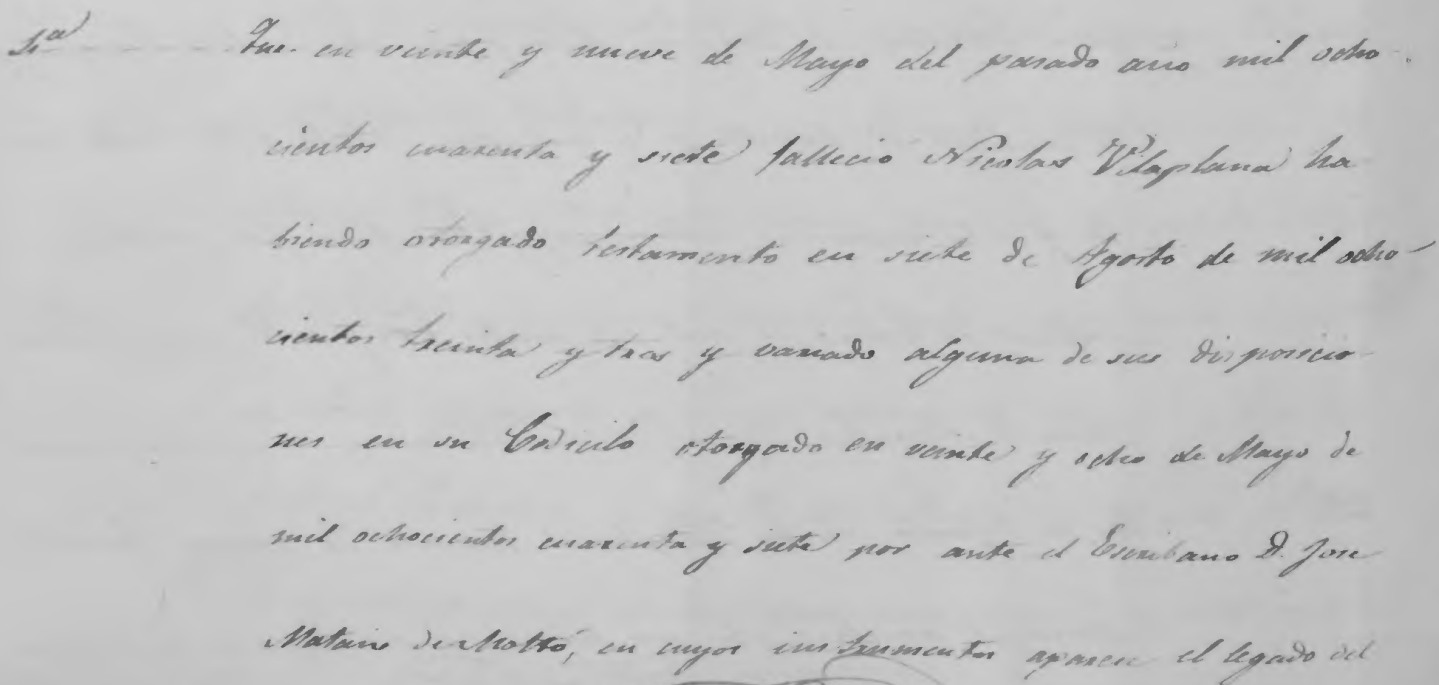 1ª Que en veinte y nueve de Mayo del pasado año mil ocho
cientos cuarenta y siete fallecio Nicolas Vilaplana ha
biendo otorgado testamento en siete de Agosto de mil ocho
cientos treinta y tres y variado alguna de sus disposicio
nes en su Codicilo otorgado en veinte y ocho de Mayo de
mil ochocientos cuarenta y siete por ante el Escribano D. Jose
Mataix de Moltó, en cuyos instrumentos aparece el legado del